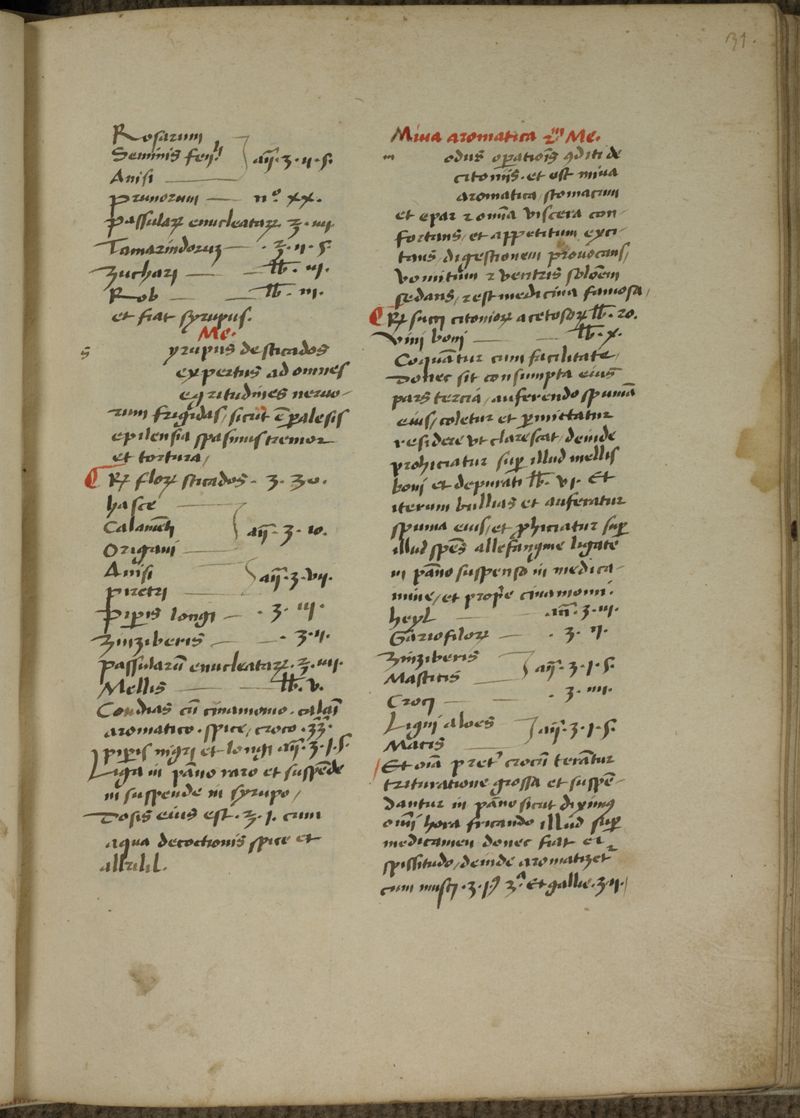 31.
Rosarum
Seminis feni
Anisi } aꝗ. ʒ. ij. s.
prunorum — nº xx.
passularꝝ enucleatarꝝ ℥. iiij.
Tamarindoruʒ — . ℥. ij. s.
Zuchari — — lb. iij.
Rob — — lb. iij.
et fiat syrupus.
Me.
s yrupus de sticados
expertus ad omnes
egritudines neruo-
rum frigidas / sicut ē palesis
epilensia spasmus tremor
et tortura /
℞ floꝝ sticados. ʒ. 30.
hasce
Calamēti
Origani } añ. ʒ. 10.
Anisi
piretri } añ. ʒ. vij.
Piperis longi — . ʒ. iij.
Zinziberis — — . ʒ. ij.
passularū enucleatarꝝ. ℥. iiij.
Mellis — — lb. v.
Condias cū cinamomo. calāi
aromatico. spice, croco. ʒʒ.
piperis nigri et longi añ. ʒ. j. s.
Liga in pāno raro et suspēde
in suspende in syrupo /
Dosis eius est. ℥. j. cum
aqua decoctionis spice et
Miua aromatica ẜm Me.
m odus opationis ꝯditi de
citonijs. et est miua
aromatica, stomacum
et epar ⁊ omīa viscera con-
fortans, et appetitum exci-
tans digestionem prouocans /
vomitum ⁊ ventris solōem
sedans, ⁊ est medicina famosa /
℞ succi citonioꝝ acetosoꝝ lb. 20.
Vini boni — lb. x.
Coquātur cum facilitate
donec sit consumpta eius
pars tercia, auferendo spumā
eius, coletur et pmittatur
residere vt clarescat, deinde
prohiciatur sup illud mellis
boni et depurati lb. vj. Et
iterum bullias et auferatur
spuma eius, et phiciatur sup
illud spēs allefangine ligate
in pāno suspenso in medica-
mine, et prope cinamomi.
heyl — . añ. ʒ. iij.
Gariofiloꝝ — . ʒ. ij.
Zinziberis
Masticis } añ. ʒ. j. s.
Croci — — . ʒ. iiij.
Ligni aloes
Macis } añ. ʒ. j. s.
Et oīa preter crocū terātur
trituratione grossa et suspē-
dantur in pāno sicut diximus
omī hora fricando illud sup
medicamen donec fiat ei
spissitudo, deinde aromatizet
cum musci. ʒ. Et gallie. ʒ. ij.